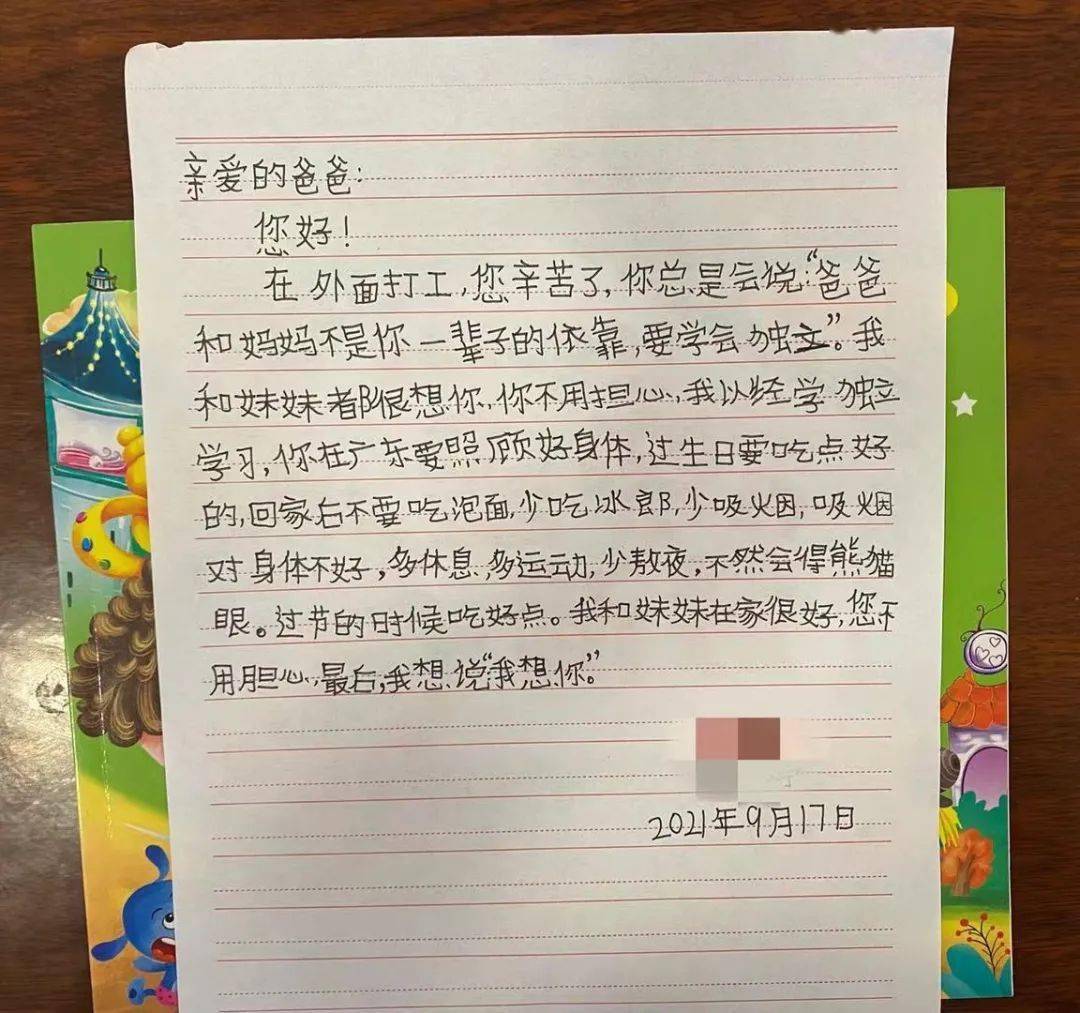 亲爱的爸爸:
您好!
在外面打工,您辛苦了,你总是会说:“爸爸
和妈妈不是你一辈子的依靠,要学会独立”。我
和妹妹都很想你,你不用担心,我以经学独立
学习,你在广东要照顾好身体,过生日要吃点好
的,回家后不要吃泡面,少吃冰郎,少吸烟,吸烟
对身体不好,多休息,多运动,少熬夜,不然会得熊猫
眼。过节的时候吃好点。我和妹妹在家很好,您不
用担心,最后,我想说“我想你。”
2021年9月17日